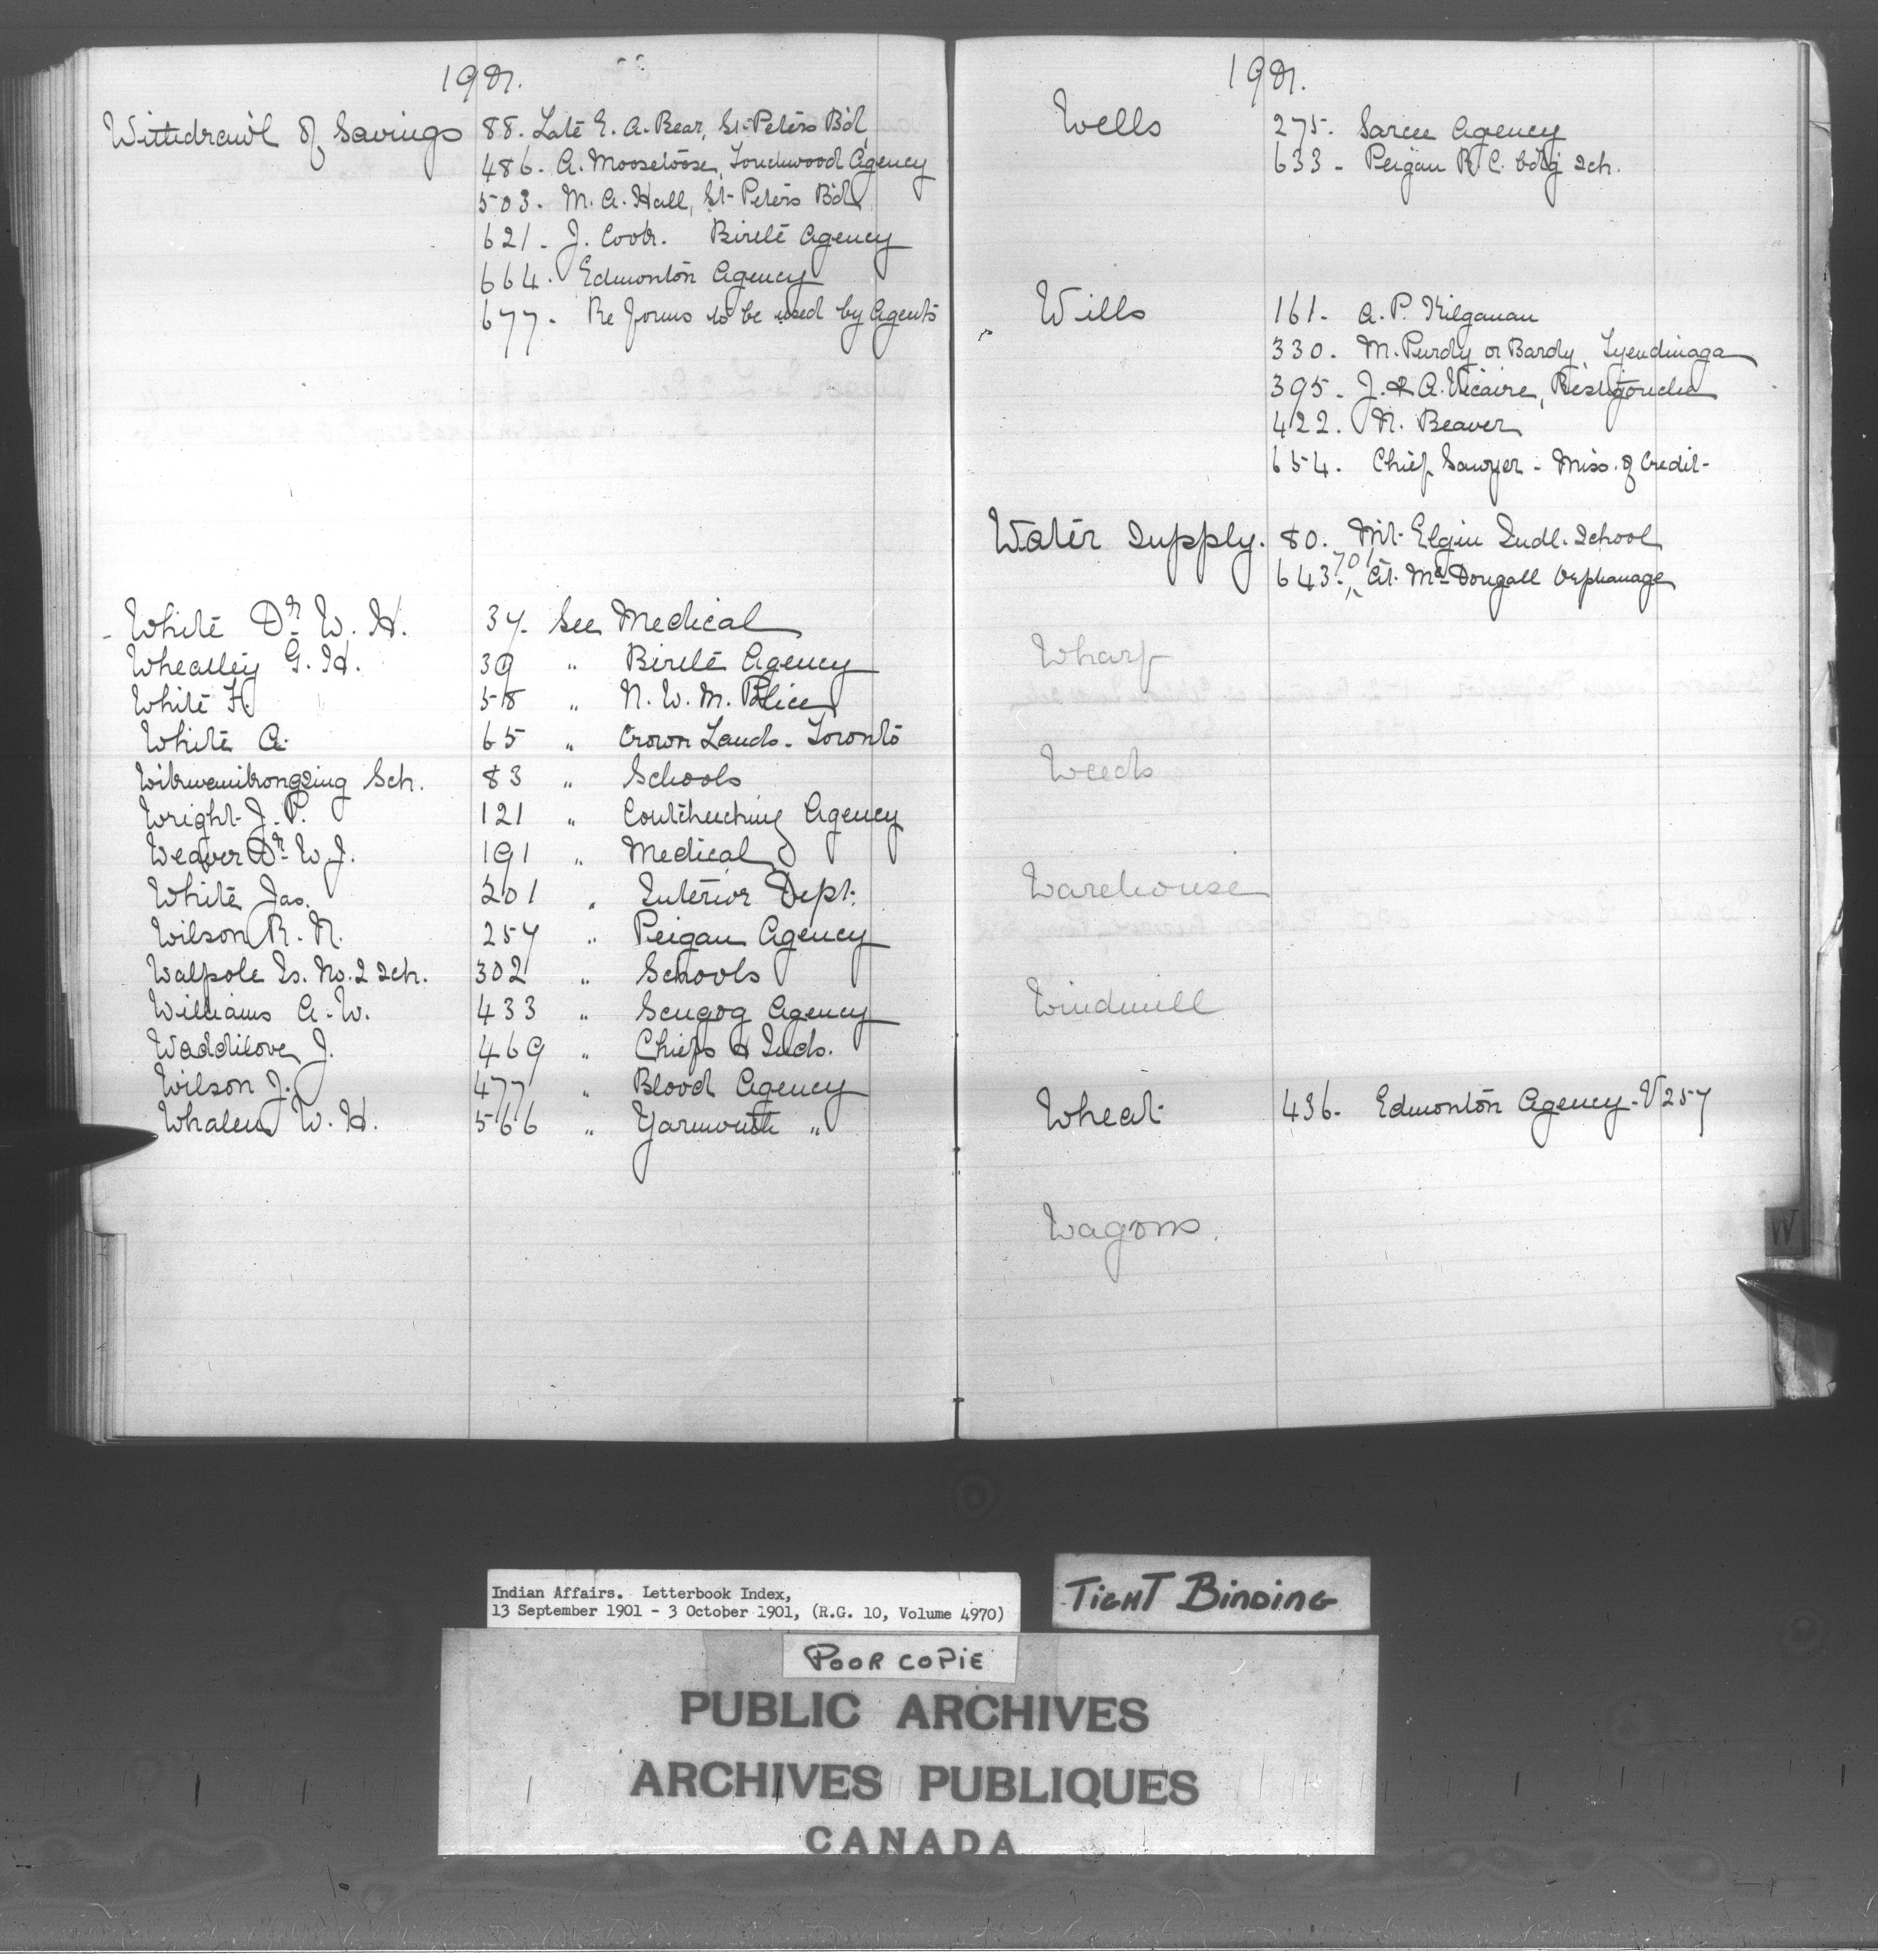 1901.
Withdrawl of Savings 88. Late E. A. Bear, St. Peters Bd.
486. A. Moosetoose, Touchwood Agency
503. M. A. Hall, St. Peters Bd.
621. J. Cook. Birtle Agency
664. Edmonton Agency
677. Re forms to be used by Agents
White Dr. W. H. 37. See Medical
Wheatley G. H. 39 " Birtle Agency
White F. 58 " N. W. M. Police
White A. 65 " Crown Lands. Toronto
Wikwemikongsing Sch. 83 " Schools
Wright J. P. 121 " Coutcheching Agency
Weaver Dr. W. J. 191 " Medical
White Jas. 201 " Interior Dept.
Wilson R. N. 257 " Peigan Agency
Walpole Is. No. 2 Sch. 302 " Schools
Williams A. W. 433 " Scugog Agency
Waddilove J. 469 " Chiefs & Inds.
Wilson J. 477 " Blood Agency
Whalen W. H. 566 " Yarmouth "
1901.
Wells 275. Sarcee Agency
633 - Peigan R. C. bdg Sch.
Wills 161. A. P. Kilganan
330. M. Purdy or Bardy, Tyendinaga
395. J. & A. Vicaire, Restigouche
422. N. Beaver
654. Chief Sawyer - Miss. of Credit
Water Supply. 80. Mt. Elgin Indl. School
701
643. " At. McDougall Orphanage
Wharf
Weeds
Warehouse
Windmill
Wheat 436. Edmonton Agency - V257
Wagons.
W
Indian Affairs. Letterbook Index,
13 September 1901 - 3 October 1901, (R.G. 10, Volume 4970)
TIGHT BINDING
POOR COPIE
PUBLIC ARCHIVES
ARCHIVES PUBLIQUES
CANADA